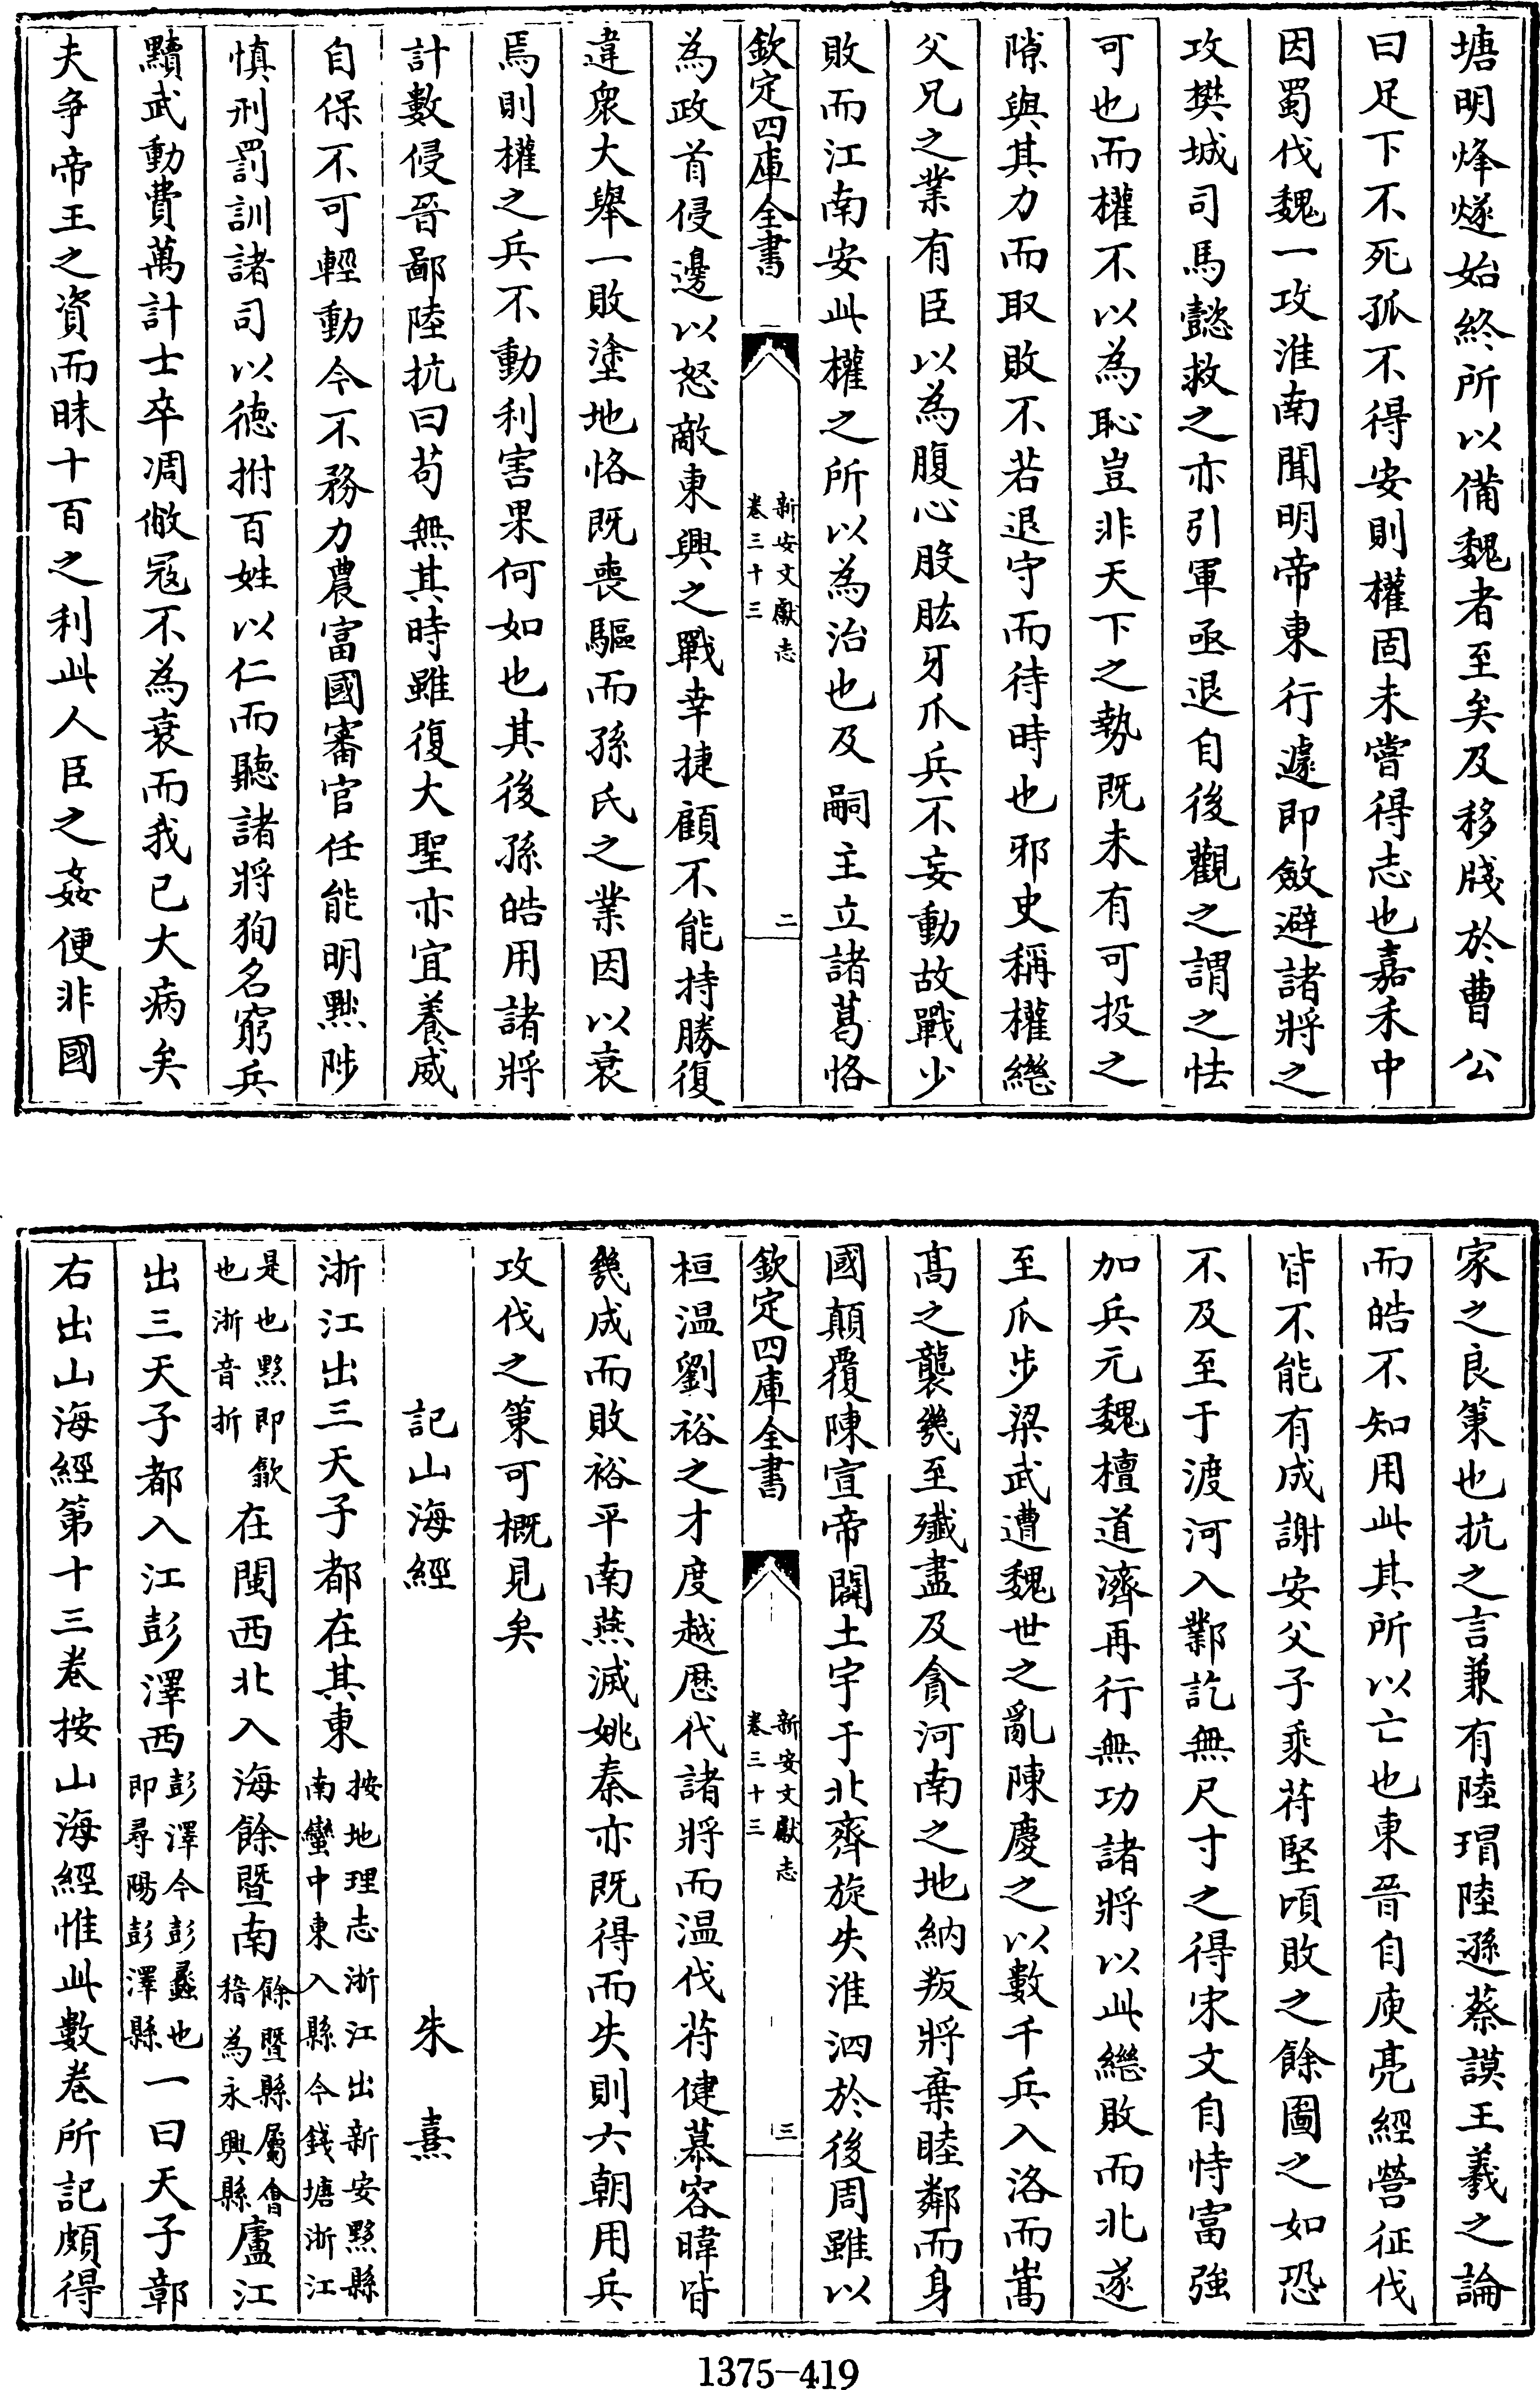 塘明烽燧始終所以備魏者至矣及移牋於曹公
曰足下不死孤不得安則權固未嘗得志也嘉禾中
因蜀伐魏一攻淮南聞明帝東行遽即斂避諸將之
攻樊城司馬懿救之亦引軍亟退自後觀之謂之怯
可也而權不以為恥豈非天下之勢既未有可投之
隙與其力而取敗不若退守而待時也邪史稱權繼
父兄之業有臣以為腹心股肱牙爪兵不妄動故戰少
敗而江南安此權之所以為治也及嗣主立諸葛恪
欽定四庫全書
新安文獻志
卷三十三
二
為政首侵邊以怒敵東興之戰幸捷顧不能持勝復
違衆大舉一敗塗地恪既喪驅而孫氏之業因以衰
焉則權之兵不動利害果何如也其後孫皓用諸將
計數侵晉鄙陸抗曰苟無其時雖復大聖亦宜養威
自保不可輕動今不務力農富國審官任能明黜陟
慎刑罰訓諸司以徳拊百姓以仁而聽諸將狥名窮兵
黷武動費萬計士卒凋敝冦不為衰而我已大病矣
夫争帝王之資而昧十百之利此人臣之姦便非國
家之良策也抗之言兼有陸瑁陸遜蔡謨王羲之論
而皓不知用此其所以亡也東晉自庾亮經營征伐
皆不能有成謝安父子乘苻堅頃敗之餘圖之如恐
不及至于渡河入鄴訖無尺寸之得宋文自恃富強
加兵元魏檀道濟再行無功諸將以此繼敗而北遂
至瓜步梁武遭魏世之亂陳慶之以數千兵入洛而嵩
髙之襲幾至殲盡及貪河南之地納叛將棄睦鄰而身
國顛覆陳宣帝闢土宇于北齊旋失淮泗於後周雖以
欽定四庫全書
新安文獻志
卷三十三
三
桓温劉裕之才度越歴代諸將而温伐苻健慕容暐皆
幾成而敗裕平南燕滅姚秦亦既得而失則六朝用兵
攻伐之策可概見矣
記山海經
朱熹
浙江出三天子都在其東按地理志浙江出新安黟縣南蠻中東入縣今錢塘浙江
是也黟即歙也浙音折在閩西北入海餘暨南餘暨縣屬會稽為永興縣廬江
出三天子都入江彭澤西彭澤今彭蠡也即尋陽彭澤縣一曰天子鄣
右出山海經第十三卷按山海經惟此數卷所記頗得
1375-419